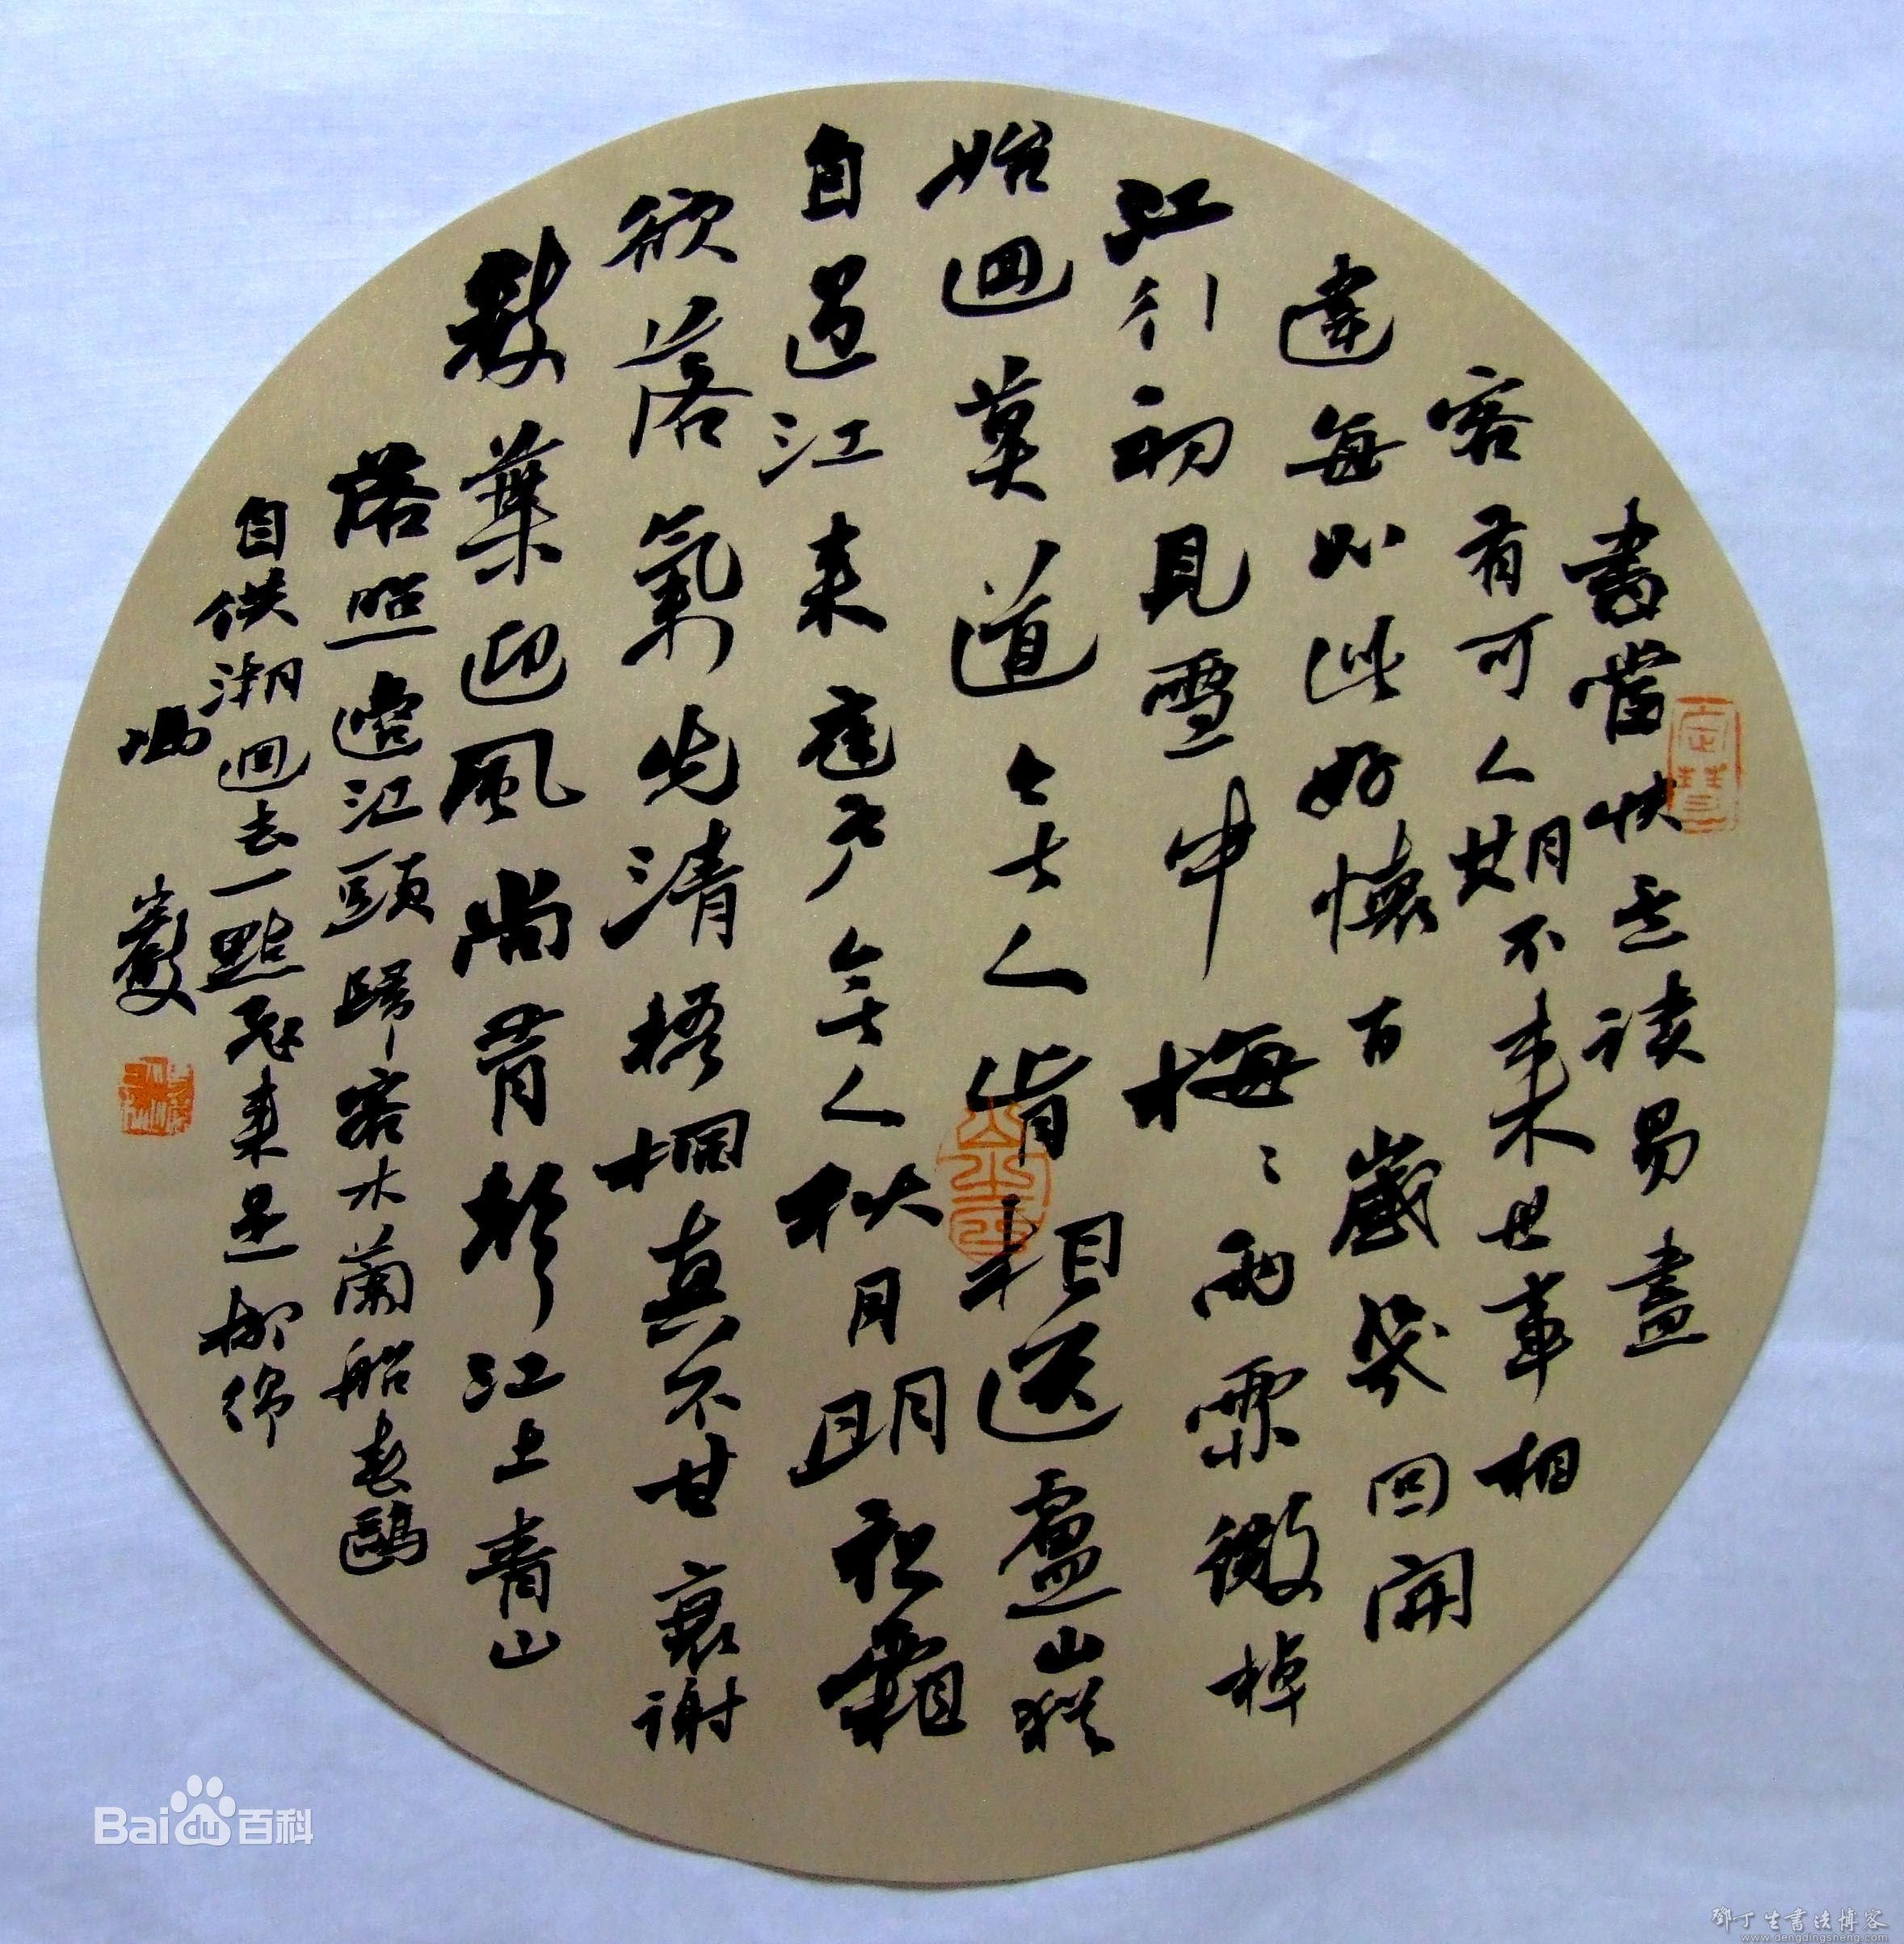 書當快意讀易盡
客有可人期不來世事相
違每如此好懷百歲幾回開
江行初見雪中梅〻雨霏微棹
始迴莫道無人肯相送廬山猶
自過江來庭户無人秋月明夜霜
欲落氣先清梧桐真不甘衰謝
數葉迎風尚有聲江上青山
落照邊江頭歸客木蘭船春鷗
自供潮迴去一點飛來是柳綿
Baidu百科
鄧丁生書法博客
www.dengdingsheng.com